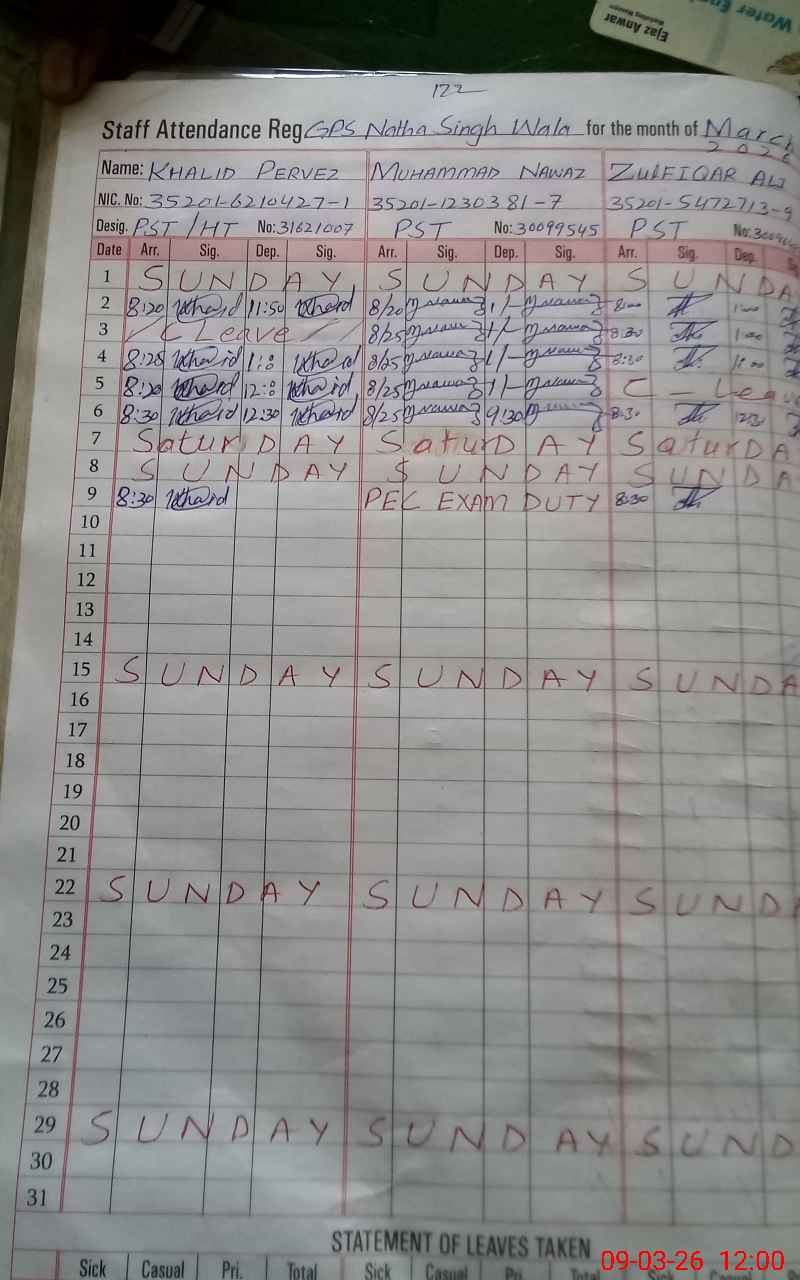 Water En
Ejaz Anwar
Marketing Manager
122
Staff Attendance Reg GPS Natha Singh Wala for the month of March
2026
Name: KHALID PERVEZ MUHAMMAD NAWAZ ZULFIQAR ALI
NIC. No: 35201-6210427-1 35201-1230381-7 35201-5472713-9
Desig. PST/HT No: 31621007 PST No: 30099545 PST No: 30096
Date Arr. Sig. Dep. Sig. Arr. Sig. Dep. Sig. Arr. Sig. Dep. S
1 SUNDAY SUNDAY SUNDA
2 8:20 Khalid 11:50 Khalid 8/20 MNawaz 1/- MNawaz 8:00 1:00
3 C Leave 8/25 MNawaz 1/- MNawaz 8:30 1:00
4 8:20 Khalid 1:0 Khalid 8/25 MNawaz 1/- MNawaz 8:30 1:00
5 8:20 Khalid 12:0 Khalid 8/25 MNawaz 1/- MNawaz C - Leave
6 8:30 Khalid 12:30 Khalid 8/25 MNawaz 9:30 8:30 12:30
7 SaturDAY SaturDAY SaturDA
8 SUNDAY SUNDAY SUNDA
9 8:30 Khalid PEC EXAM DUTY 8:30
10
11
12
13
14
15 SUNDAY SUNDAY SUNDA
16
17
18
19
20
21
22 SUNDAY SUNDAY SUNDA
23
24
25
26
27
28
29 SUNDAY SUNDAY SUND
30
31
STATEMENT OF LEAVES TAKEN
Sick Casual Pri. Total Sick Casual Pri. Total Sick
09-03-26 12:00